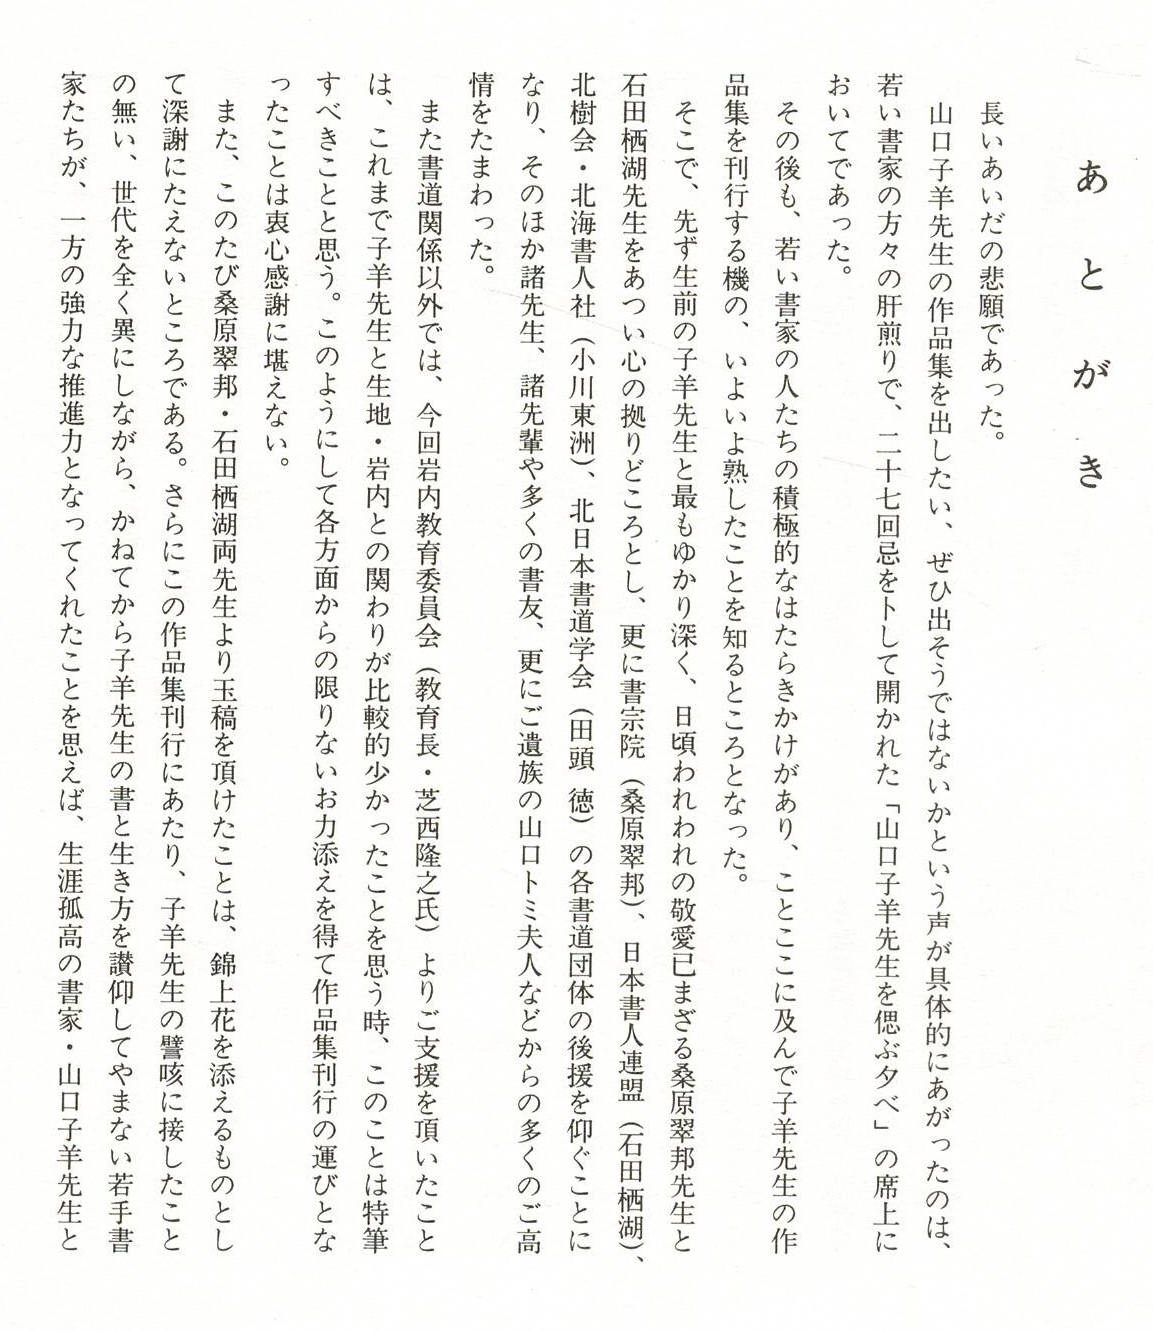 あとがき
長いあいだの悲願であった。
山口子羊先生の作品集を出したい、ぜひ出そうではないかという声が具体的にあがったのは、
若い書家の方々の肝煎りで、二十七回忌をトして開かれた「山口子羊先生を偲ぶ夕べ」の席上に
おいてであった。
その後も、若い書家の人たちの積極的なはたらきかけがあり、ことここに及んで子羊先生の作
品集を刊行する機の、いよいよ熟したことを知るところとなった。
そこで、先ず生前の子羊先生と最もゆかり深く、日頃われわれの敬愛已まざる桑原翠邦先生と
石田栖湖先生をあつい心の拠りどころとし、更に書宗院（桑原翠邦）、日本書人連盟（石田栖湖）、
北樹会・北海書人社（小川東洲）、北日本書道学会（田頭 徳）の各書道団体の後援を仰ぐことに
なり、そのほか諸先生、諸先輩や多くの書友、更にご遺族の山口トミ夫人などからの多くのご高
情をたまわった。
また書道関係以外では、今回岩内教育委員会（教育長・芝西隆之氏）よりご支援を頂いたこと
は、これまで子羊先生と生地・岩内との関わりが比較的少かったことを思う時、このことは特筆
すべきことと思う。このようにして各方面からの限りないお力添えを得て作品集刊行の運びとな
ったことは衷心感謝に堪えない。
また、このたび桑原翠邦・石田栖湖両先生より玉稿を頂けたことは、錦上花を添えるものとし
て深謝にたえないところである。さらにこの作品集刊行にあたり、子羊先生の謦咳に接したこと
の無い、世代を全く異にしながら、かねてから子羊先生の書と生き方を讃仰してやまない若手書
家たちが、一方の強力な推進力となってくれたことを思えば、生涯孤高の書家・山口子羊先生と